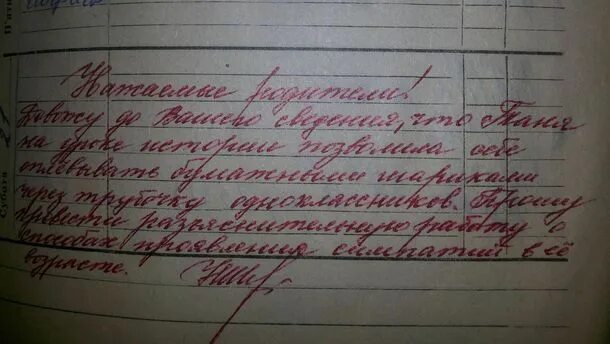 Уважаемые родители!
Довожу до Вашего сведения, что Таня
на уроке истории позволила себе
оплёвывать бумажными шариками
через трубочку одноклассников. Прошу
провести разъяснительную работу о
способах проявления симпатий в её
возрасте.
Субота